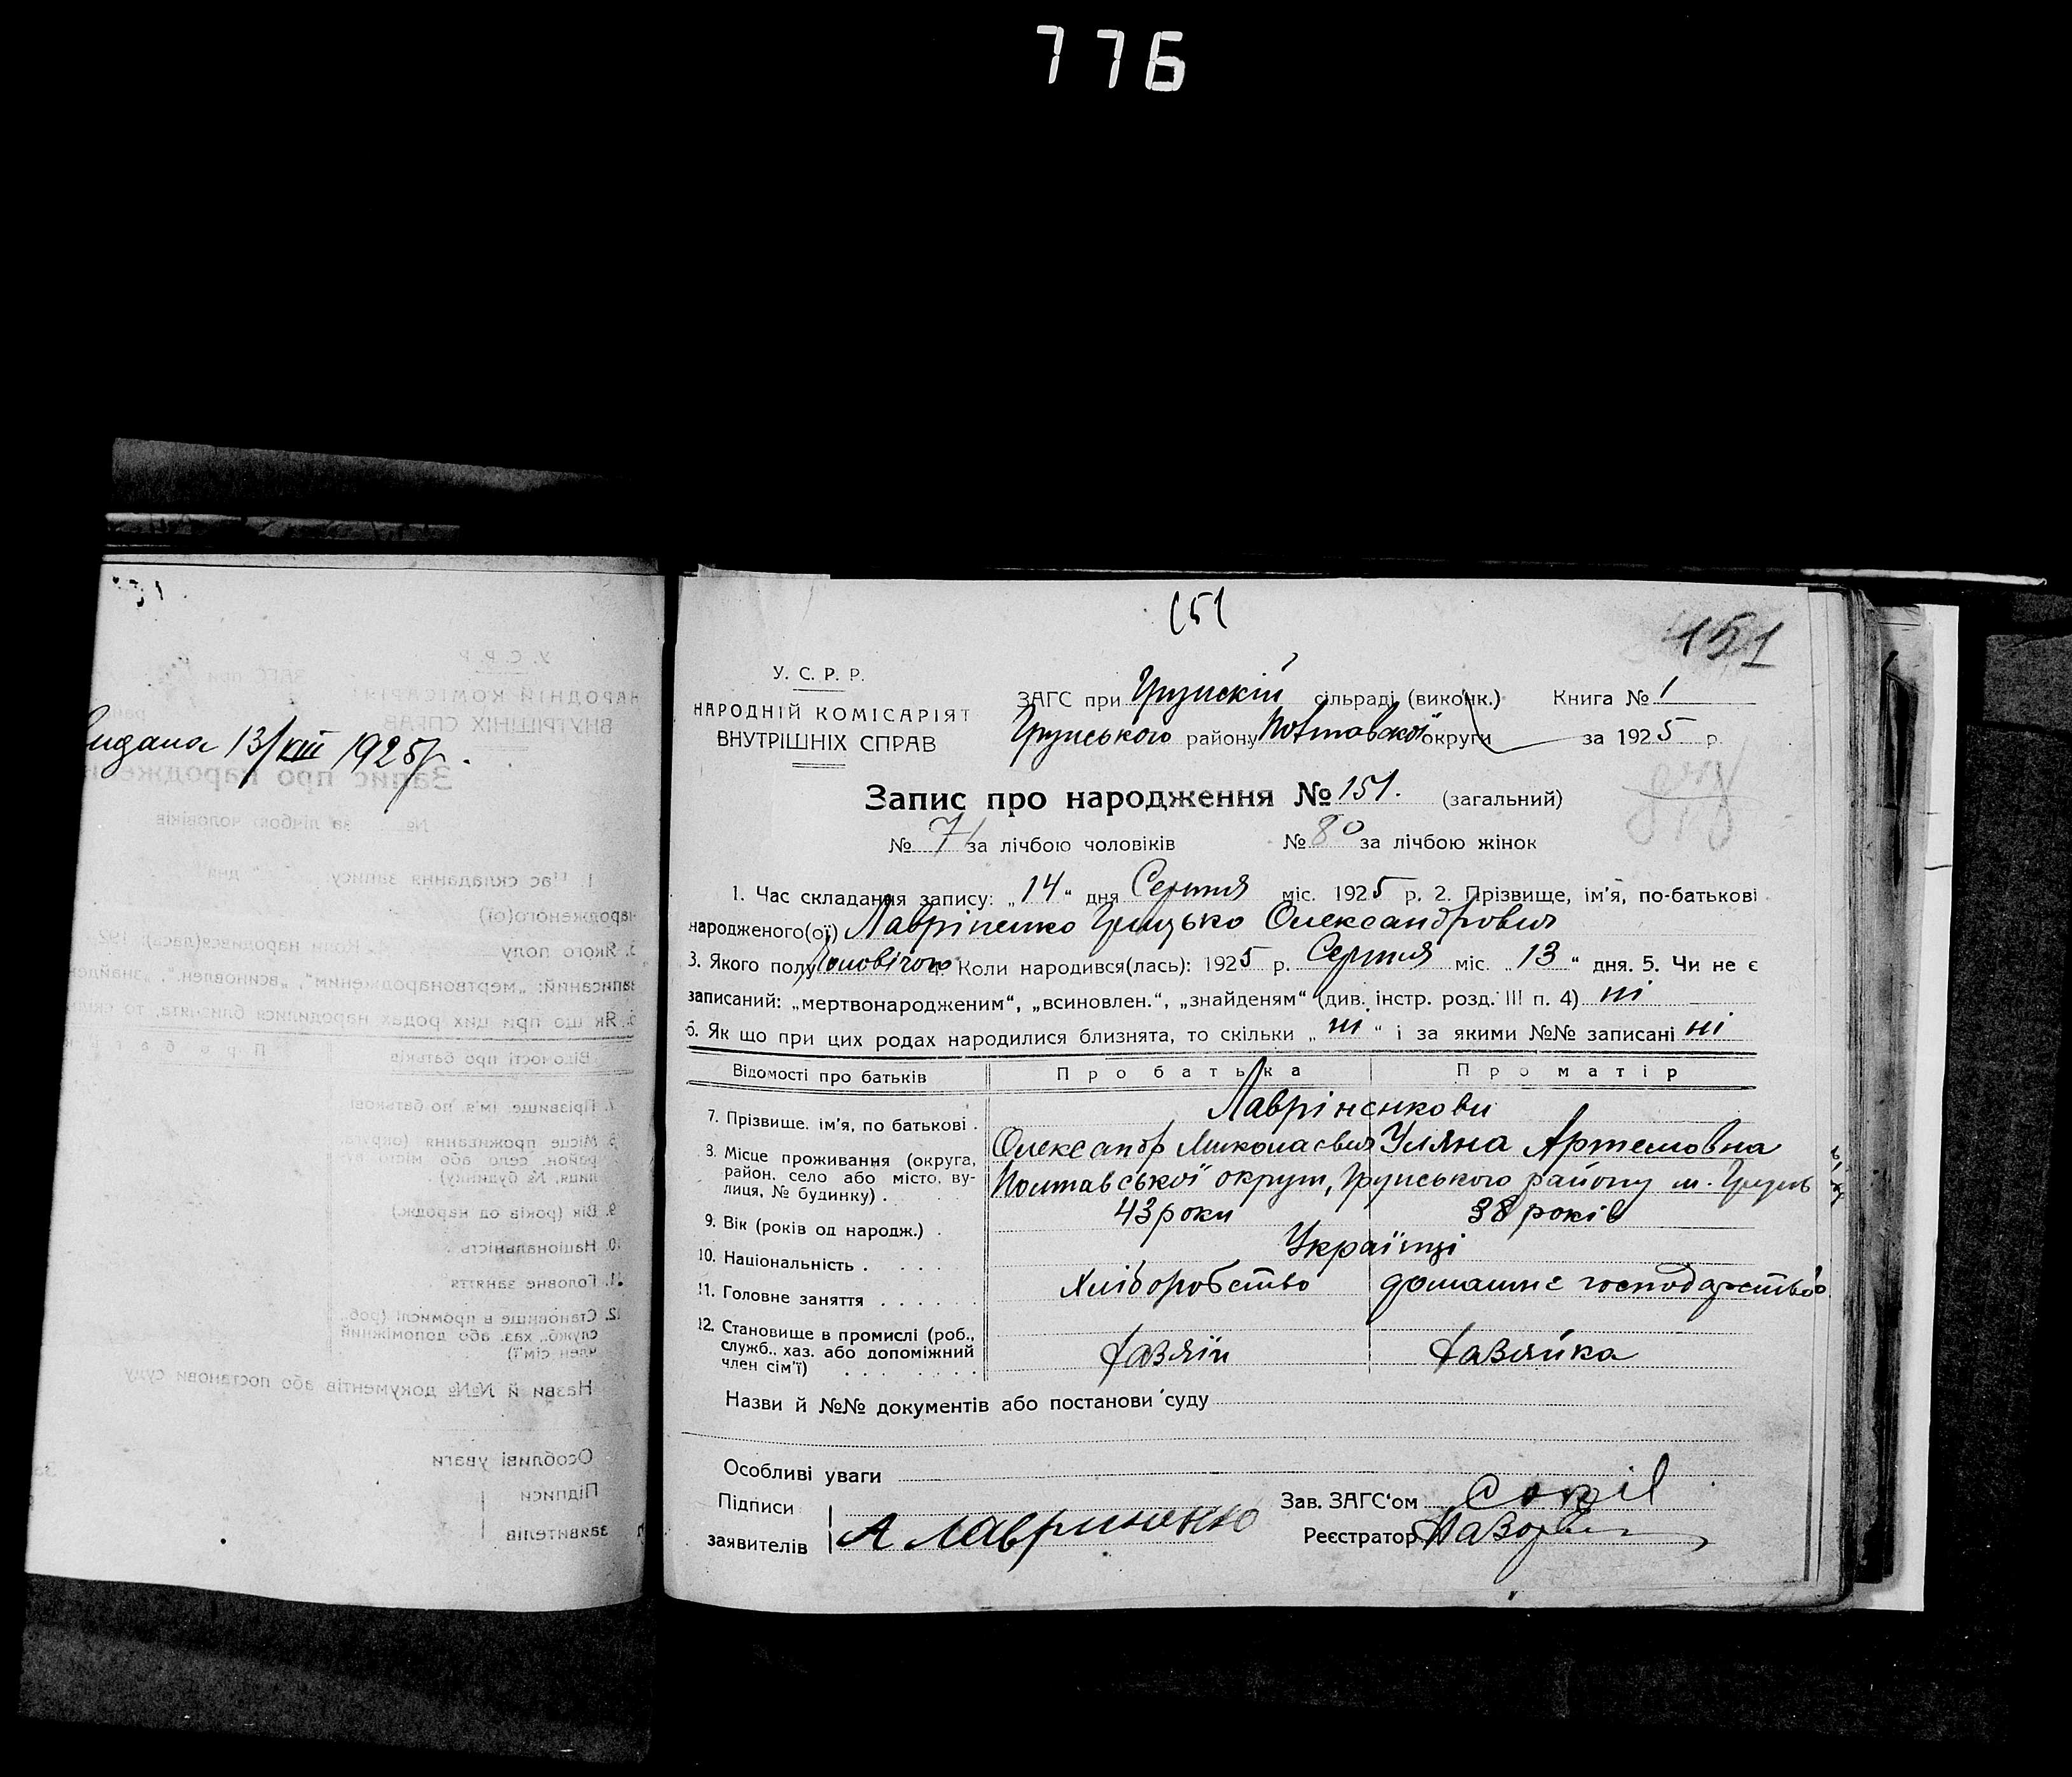 776
151
151
У. С. Р. Р.
НАРОДНІЙ КОМІСАРІЯТ
ВНУТРІШНІХ СПРАВ
ЗАГС при Грунскій сільраді (виконк.) Книга № 1
Грунського району Полтавської округи за 1925 р.
Видана 13/VIII 1925 р.
Запис про народження № 151. (загальний)
№ 71 за лічбою чоловіків № 80 за лічбою жінок
1. Час складання запису: „14“ дня Серпня міс. 1925 р. 2. Прізвище, ім'я, по-батькові
народженого(ої) Лавріненко Грицько Олександрович
3. Якого полу Чоловічого 4. Коли народився(лась): 1925 р. Серпня міс. „13“ дня. 5. Чи не є
записаний: „мертвонародженим“, „всиновлен.“, „знайденям“ (див. інстр. розд. III п. 4) ні
6. Як що при цих родах народилися близнята, то скільки „ні“ і за якими №№ записані ні
Відомості про батьків Про батька Про матір
7. Прізвище. ім'я, по батькові . Лаврінєнкови
Олександр Миколаєвич Уляна Артемовна
8. Місце проживання (округа, район, село або місто, вулиця, № будинку) . Полтавської округи, Грунського району м. Грунь
9. Вік (років од народж.) . 43 роки 38 років
10. Національність . . . . Українці
11. Головне заняття . . . . . . Хліборобство домашнє господарство
12. Становище в промислі (роб., служб., хаз. або допоміжний член сім'ї) . . . . . . . Хазяїн Хазяйка
Назви й №№ документів або постанови суду
Особливі уваги
Підписи
заявителів А Лавриненко
Зав. ЗАГС'ом
Реєстратор